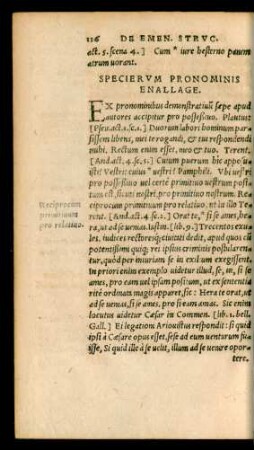 116 DE EMEN. STRVC.
act. 5. scena 4.] Cum " iure hesterno panem
atrum uorant.
SPECIERVM PRONOMINIS
ENALLAGE.
EX pronominibus demonstratiuũ sæpe apud
autores accipitur pro possessiuo. Plautus
[Pseu. act. 1. sc. 1.] Duorum labori hominum par-
sissem libens, mei te rogandi, & tui respondendi
mihi. Rectum enim esset, meo & tuo. Terent.
[And. act. 4. sc. 5.] Cuium puerum hic appo-
isti? Vestri: cuius " uestri? Pamphili. Vbi ues̃ri
pro possessiuo uel certè primitiuo uestrum positum
est, sicuti nostri, pro primitiuo nostrum. Re-
ciprocum primitiuum pro relatiuo, ut in illo Te-
rent. [And. act. 4. sc. 2.] Ora te, " si se ames, he-
ra, ut ad se uenias. Iustin. [lib. 9.] Trecentos exu-
les, iudices rectoresq; ciuitati dedit, apud quos cũ
potentissimi quiq; rei ipsius criminis postularen-
tur, quòd per iniuriam se in exilium exegissent.
In priori enim exemplo uidetur illud, se, in, si se
ames, pro eam uel ipsam positum, ut ex sententiæ
ritè ordinem magis apparet, sic: Hera te orat, ut
ad se uenias, si se ames, pro si eam amas. Sic enim
locutus uidetur Cæsar in Commen. [lib. 1. bell.
Gall.] Ei legationi Ariouistus respondit: si quid
ipsi à Cæsare opus esset, sese ad eum uenturum fu-
isse, Si quid ille à se uelit, illum ad se uenire opor-
tere.
Reciprocum
primitiuum
pro relatiuo.